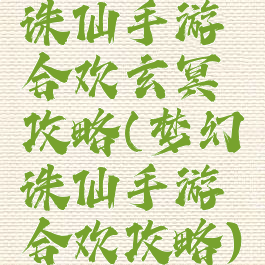 诛仙手游
合欢玄冥
攻略(梦幻
诛仙手游
合欢攻略)